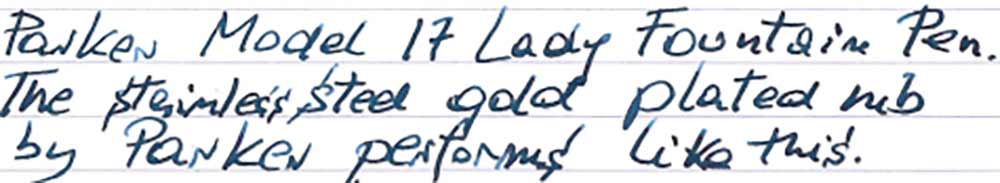 Parker Model 17 Lady Fountain Pen.
The stainless steel gold plated nib
by Parker performs like this.